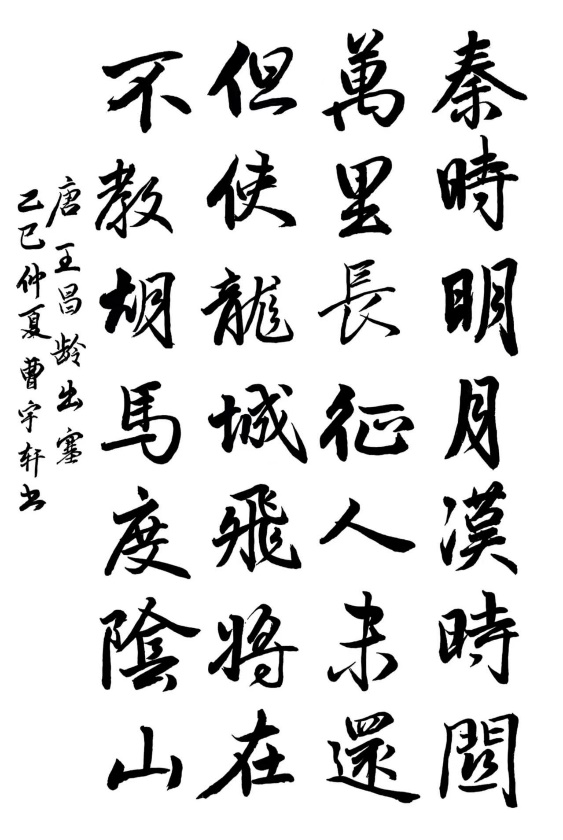 秦時明月漢時關
萬里長征人未還
但使龍城飛將在
不教胡馬度陰山
唐王昌龄出塞
乙巳仲夏曹宇轩书